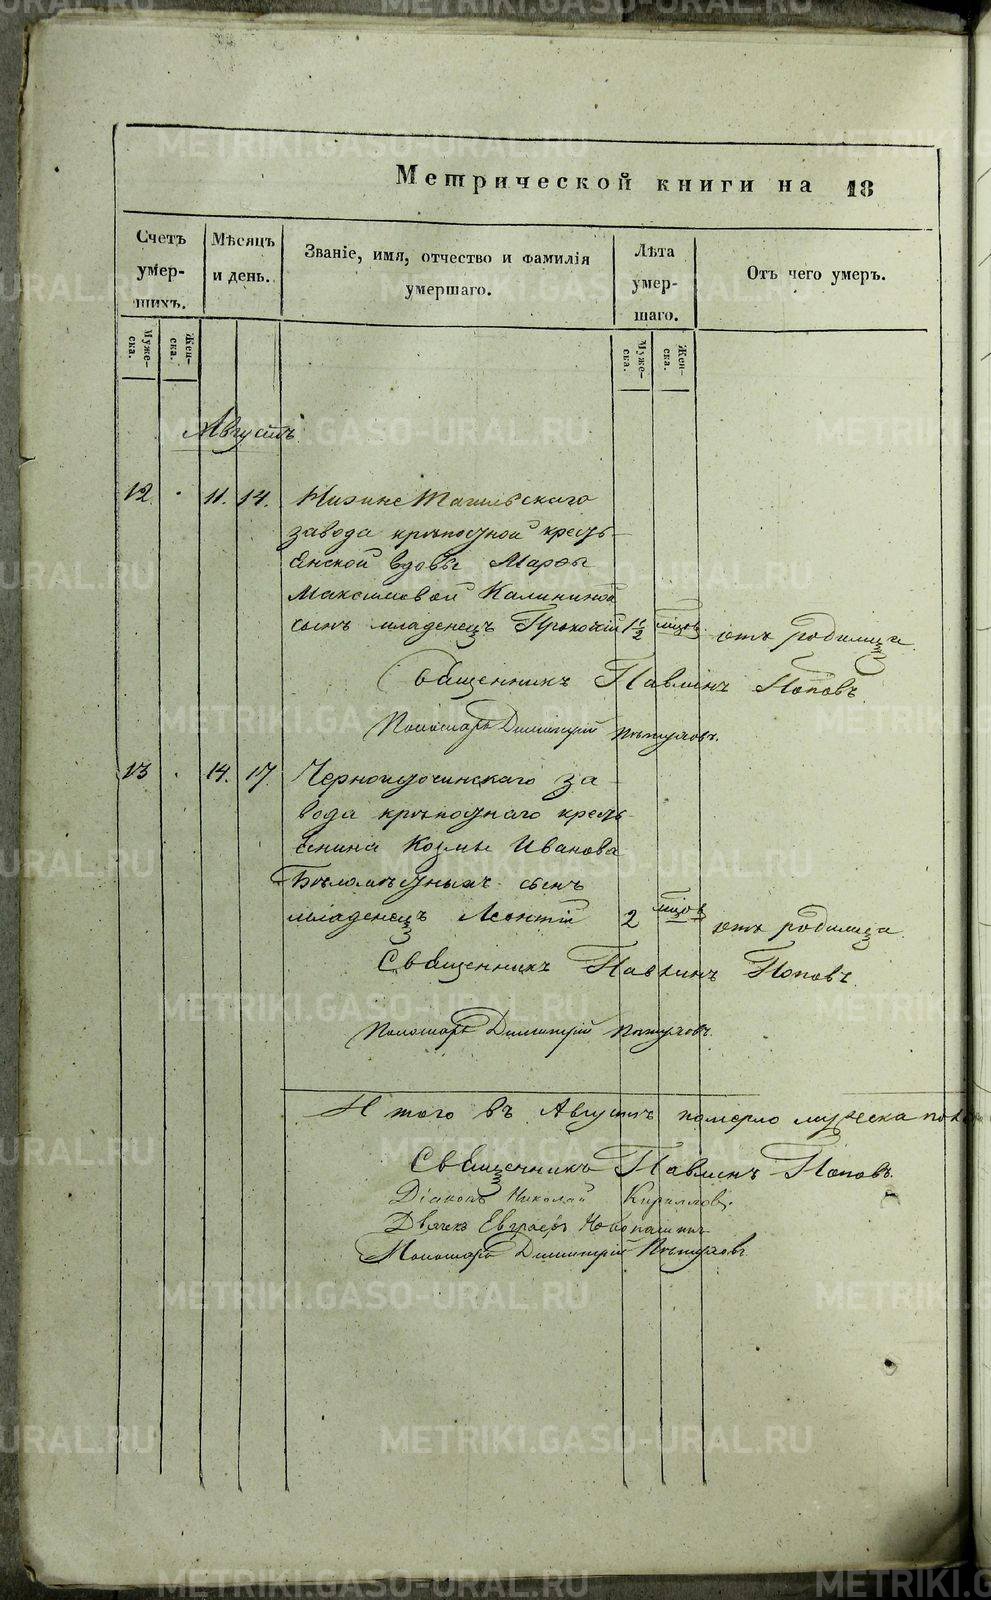 Метрической книги на 18
Счетъ умер- шихъ.
Мѣсяцъ и день.
Званіе, имя, отчество и фамилія умершаго.
Лѣта умер- шаго.
Отъ чего умеръ.
Муже- ска.
Жен- ска.
Муже- ска.
Жен- ска.
Августъ
12 . 11. 14. Нижне Тагильскаго
завода крѣпостной кресть-
янской вдовы Марѳы
Максимовой Калининой
сынъ младенецъ Прокопій 1 1/2 мѣцов. отъ родимца.
Священникъ Павлинъ Поповъ
Пономарь Димитрій
13 . 14. 17. Черноисточинскаго за-
вода крѣпостнаго кресть-
янина Козмы Иванова
Бѣломѣстныхъ сынъ
младенецъ Леонтій 2 мѣцов отъ родимца.
Священникъ Павлинъ Поповъ.
Пономарь Димитрій
Итого въ Августѣ померло мужеска
Священникъ Павлинъ Поповъ.
Діаконъ Николай Кирилловъ.
Дьячекъ Евграфъ Новопашинъ
Пономарь Димитрій
METRIKI.GASO-URAL.RU